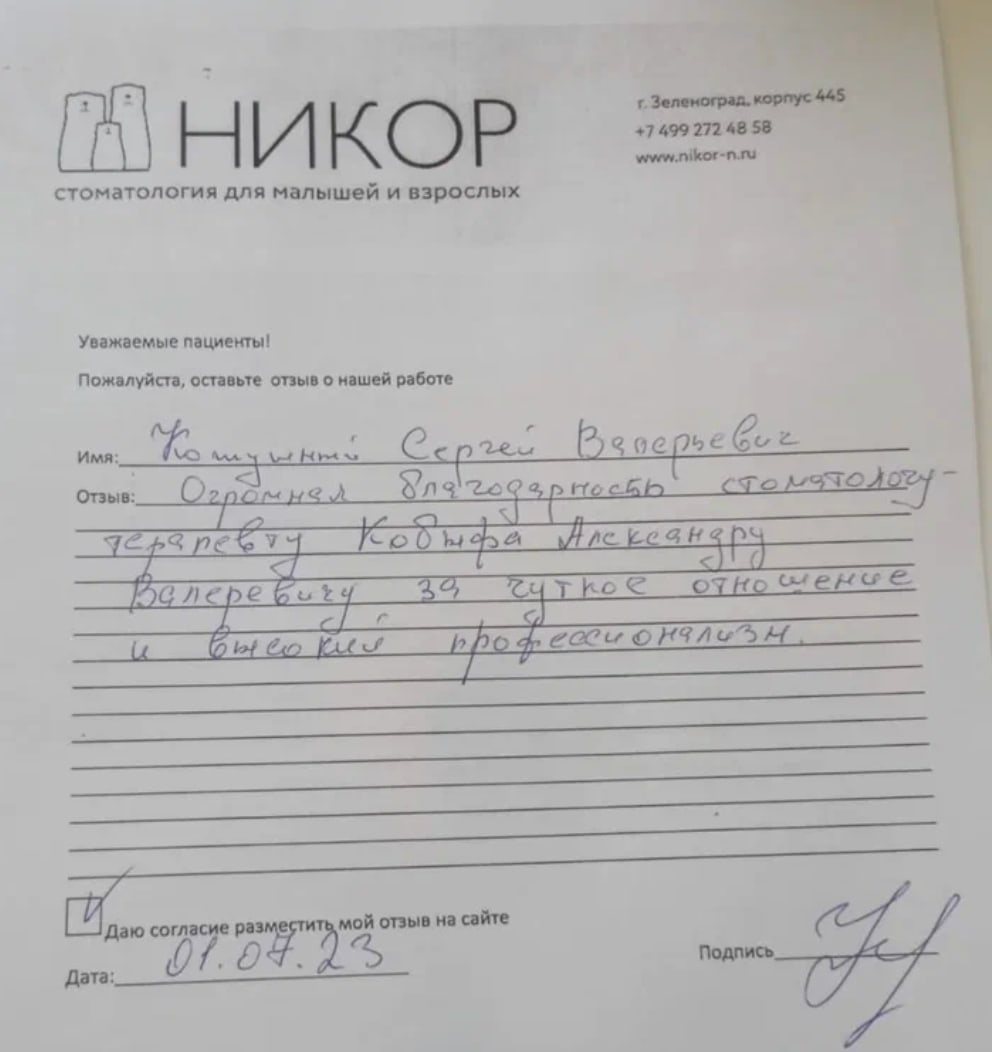 НИКОР
стоматология для малышей и взрослых
г. Зеленоград, корпус 445
+7 499 272 48 58
www.nikor-n.ru
Уважаемые пациенты!
Пожалуйста, оставьте отзыв о нашей работе
Имя: Сергей Валерьевич
Отзыв: Огромная благодарность стоматологу-
терапевту Кобыфа Александру
Валеревичу за чуткое отношение
и высокий профессионализм.
Даю согласие разместить мой отзыв на сайте
Дата: 01.07.23
Подпись